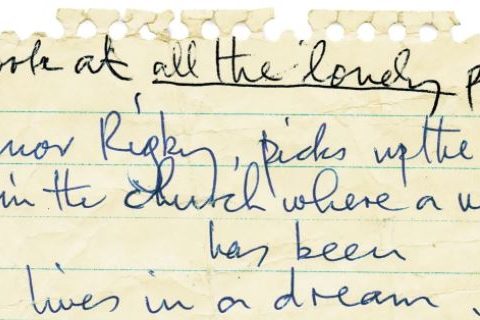 ook at all the lonely p
nor Rigby, picks up the
in the church where a w
has been
lives in a dream